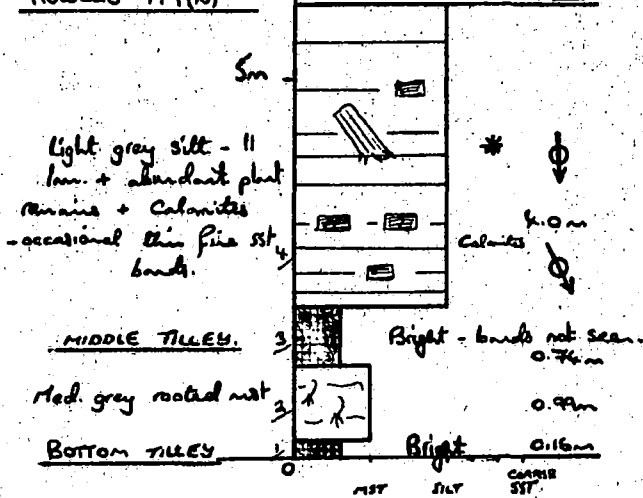 5m
Light grey silt - ||
lam. + abundant plant
remains + Calamites
- occasional thin fine sst
bands.
4
4.0m
Calamites
MIDDLE TILLEY.
3
Bright - bands not seen.
0.74m
Med. grey rooted mst
2
0.99m
BOTTOM TILLEY
1
Bright
0.16m
0
MST SILT COARSE
SST.